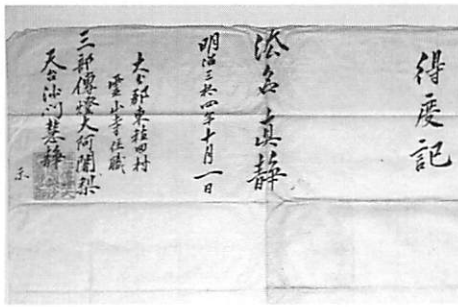 得度記
法名真静
明治三拾四年十月一日
大分郡東稙田村
霊山寺住職
三部傳燈大阿闍梨
天台沙門慧静
示